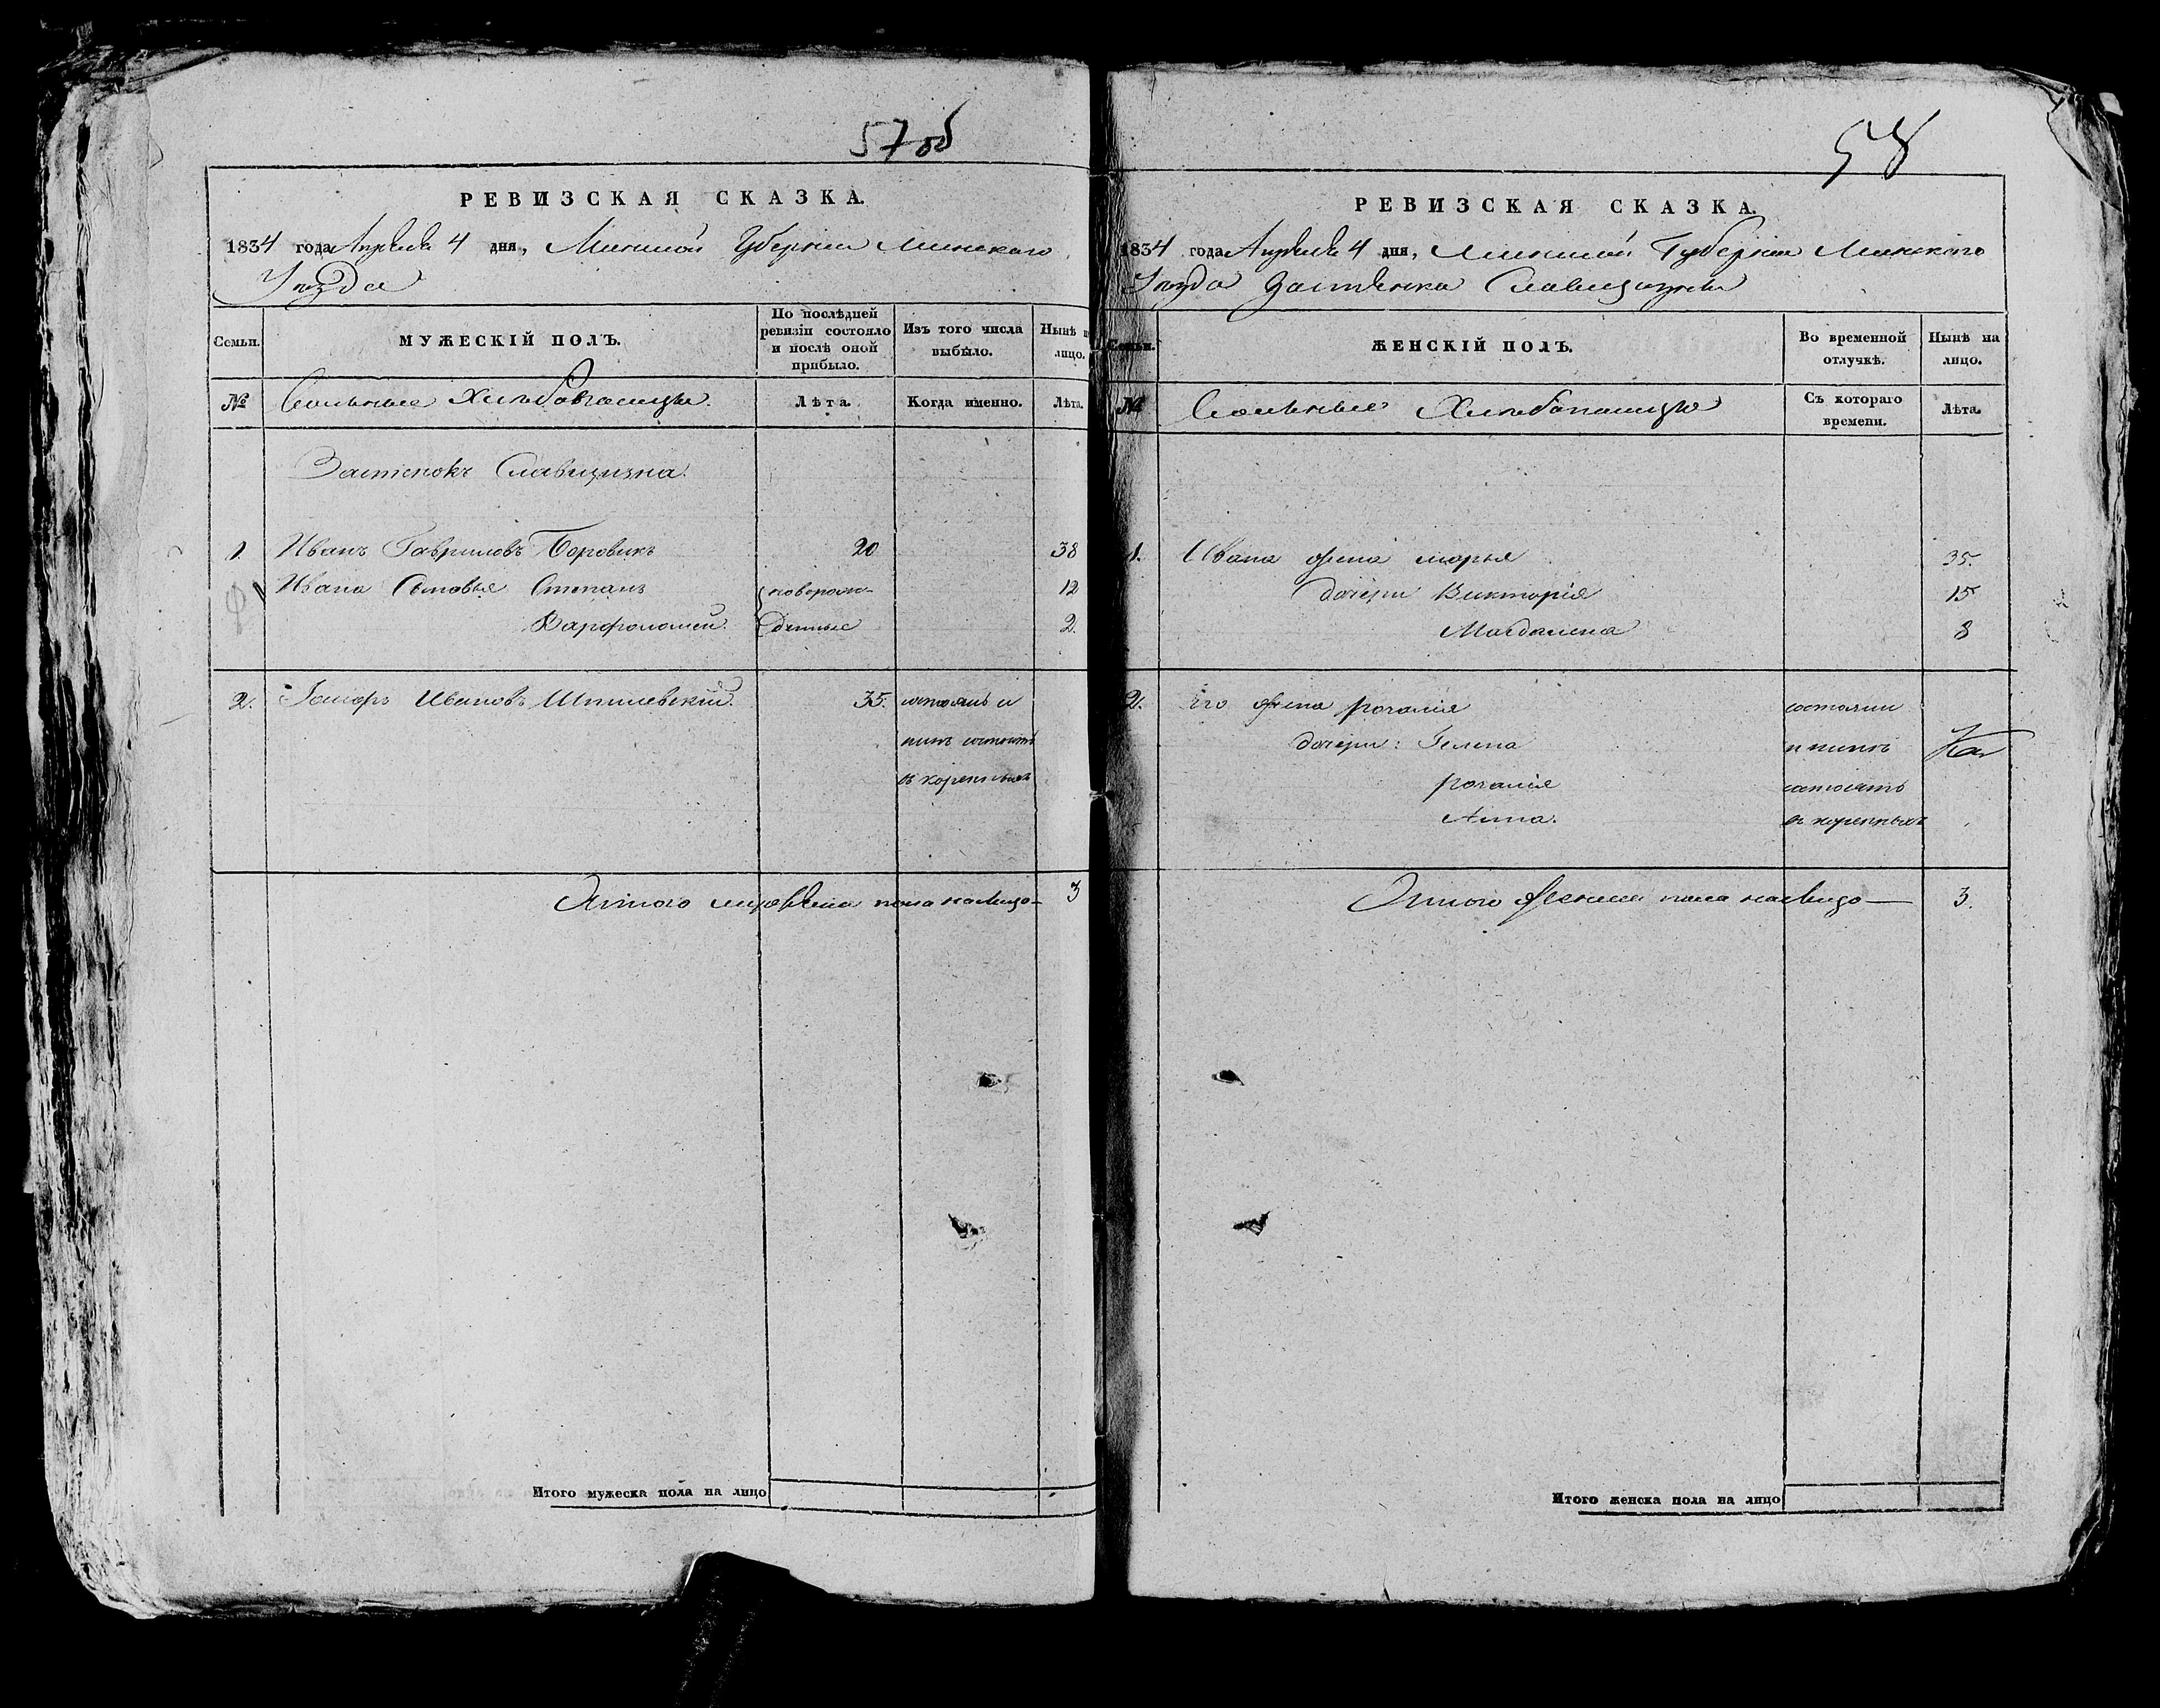 57 об
РЕВИЗСКАЯ СКАЗКА.
1834 года Апреля 4 дня, Минской Губернии Минского
Уезда
Семьи. МУЖЕСКІЙ ПОЛЪ. По послѣдней ревизіи состояло и послѣ оной прибыло. Изъ того числа выбыло. Нынѣ на лицо.
№ Вольные Хлебопашцы. Лѣта. Когда именно. Лѣта.
Застенокъ Славщизна.
1 Иванъ Гавриловъ Боровикъ 20 38
Ивана Сыновья Степанъ новорож- 12
Варфоломей. денные 2.
2. Иванов Шпилевский. 35. состоялъ и
нынъ состоитъ
въ коренныхъ
Этого мужеска пола налицо — 3
Итого мужеска пола на лицо
58
РЕВИЗСКАЯ СКАЗКА.
1834 года Апреля 4 дня, Минской Губернии Минского
Уезда Застенка Славщизны
Семьи. ЖЕНСКІЙ ПОЛЪ. Во временной отлучкѣ. Нынѣ на лицо.
№ Вольные Хлебопашцы Съ котораго времени. Лѣта.
1. Ивана жена марья 35.
дочери Викторія 15
Магдалена 8
2. Его жена розалія состояли
дочери: Гелена и нынѣ
розалія состоятъ
Анна. въ коренныхъ
Этого женска пола налицо — 3.
Итого женска пола на лицо